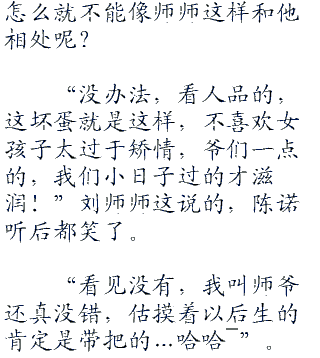 怎么就不能像师师这样和他
相处呢？
“没办法，看人品的，
这坏蛋就是这样，不喜欢女
孩子太过于矫情，爷们一点
的，我们小日子过的才滋
润！”刘师师这说的，陈诺
听后都笑了。
“看见没有，我叫师爷
还真没错，估摸着以后生的
肯定是带把的…哈哈~”。